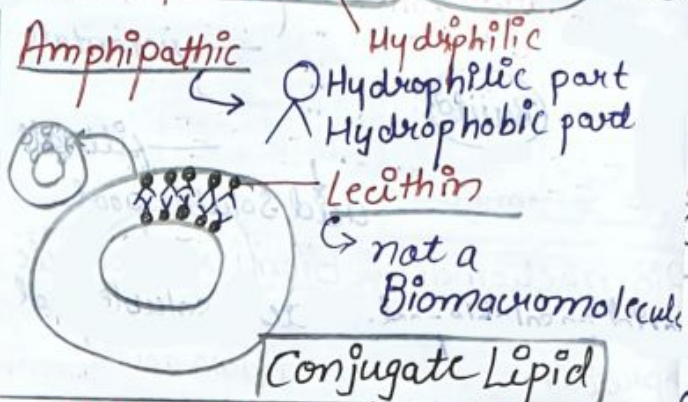 Hydrophilic
Amphipathic
Hydrophilic part
Hydrophobic part
Lecithin
not a
Biomacromolecule
Conjugate Lipid